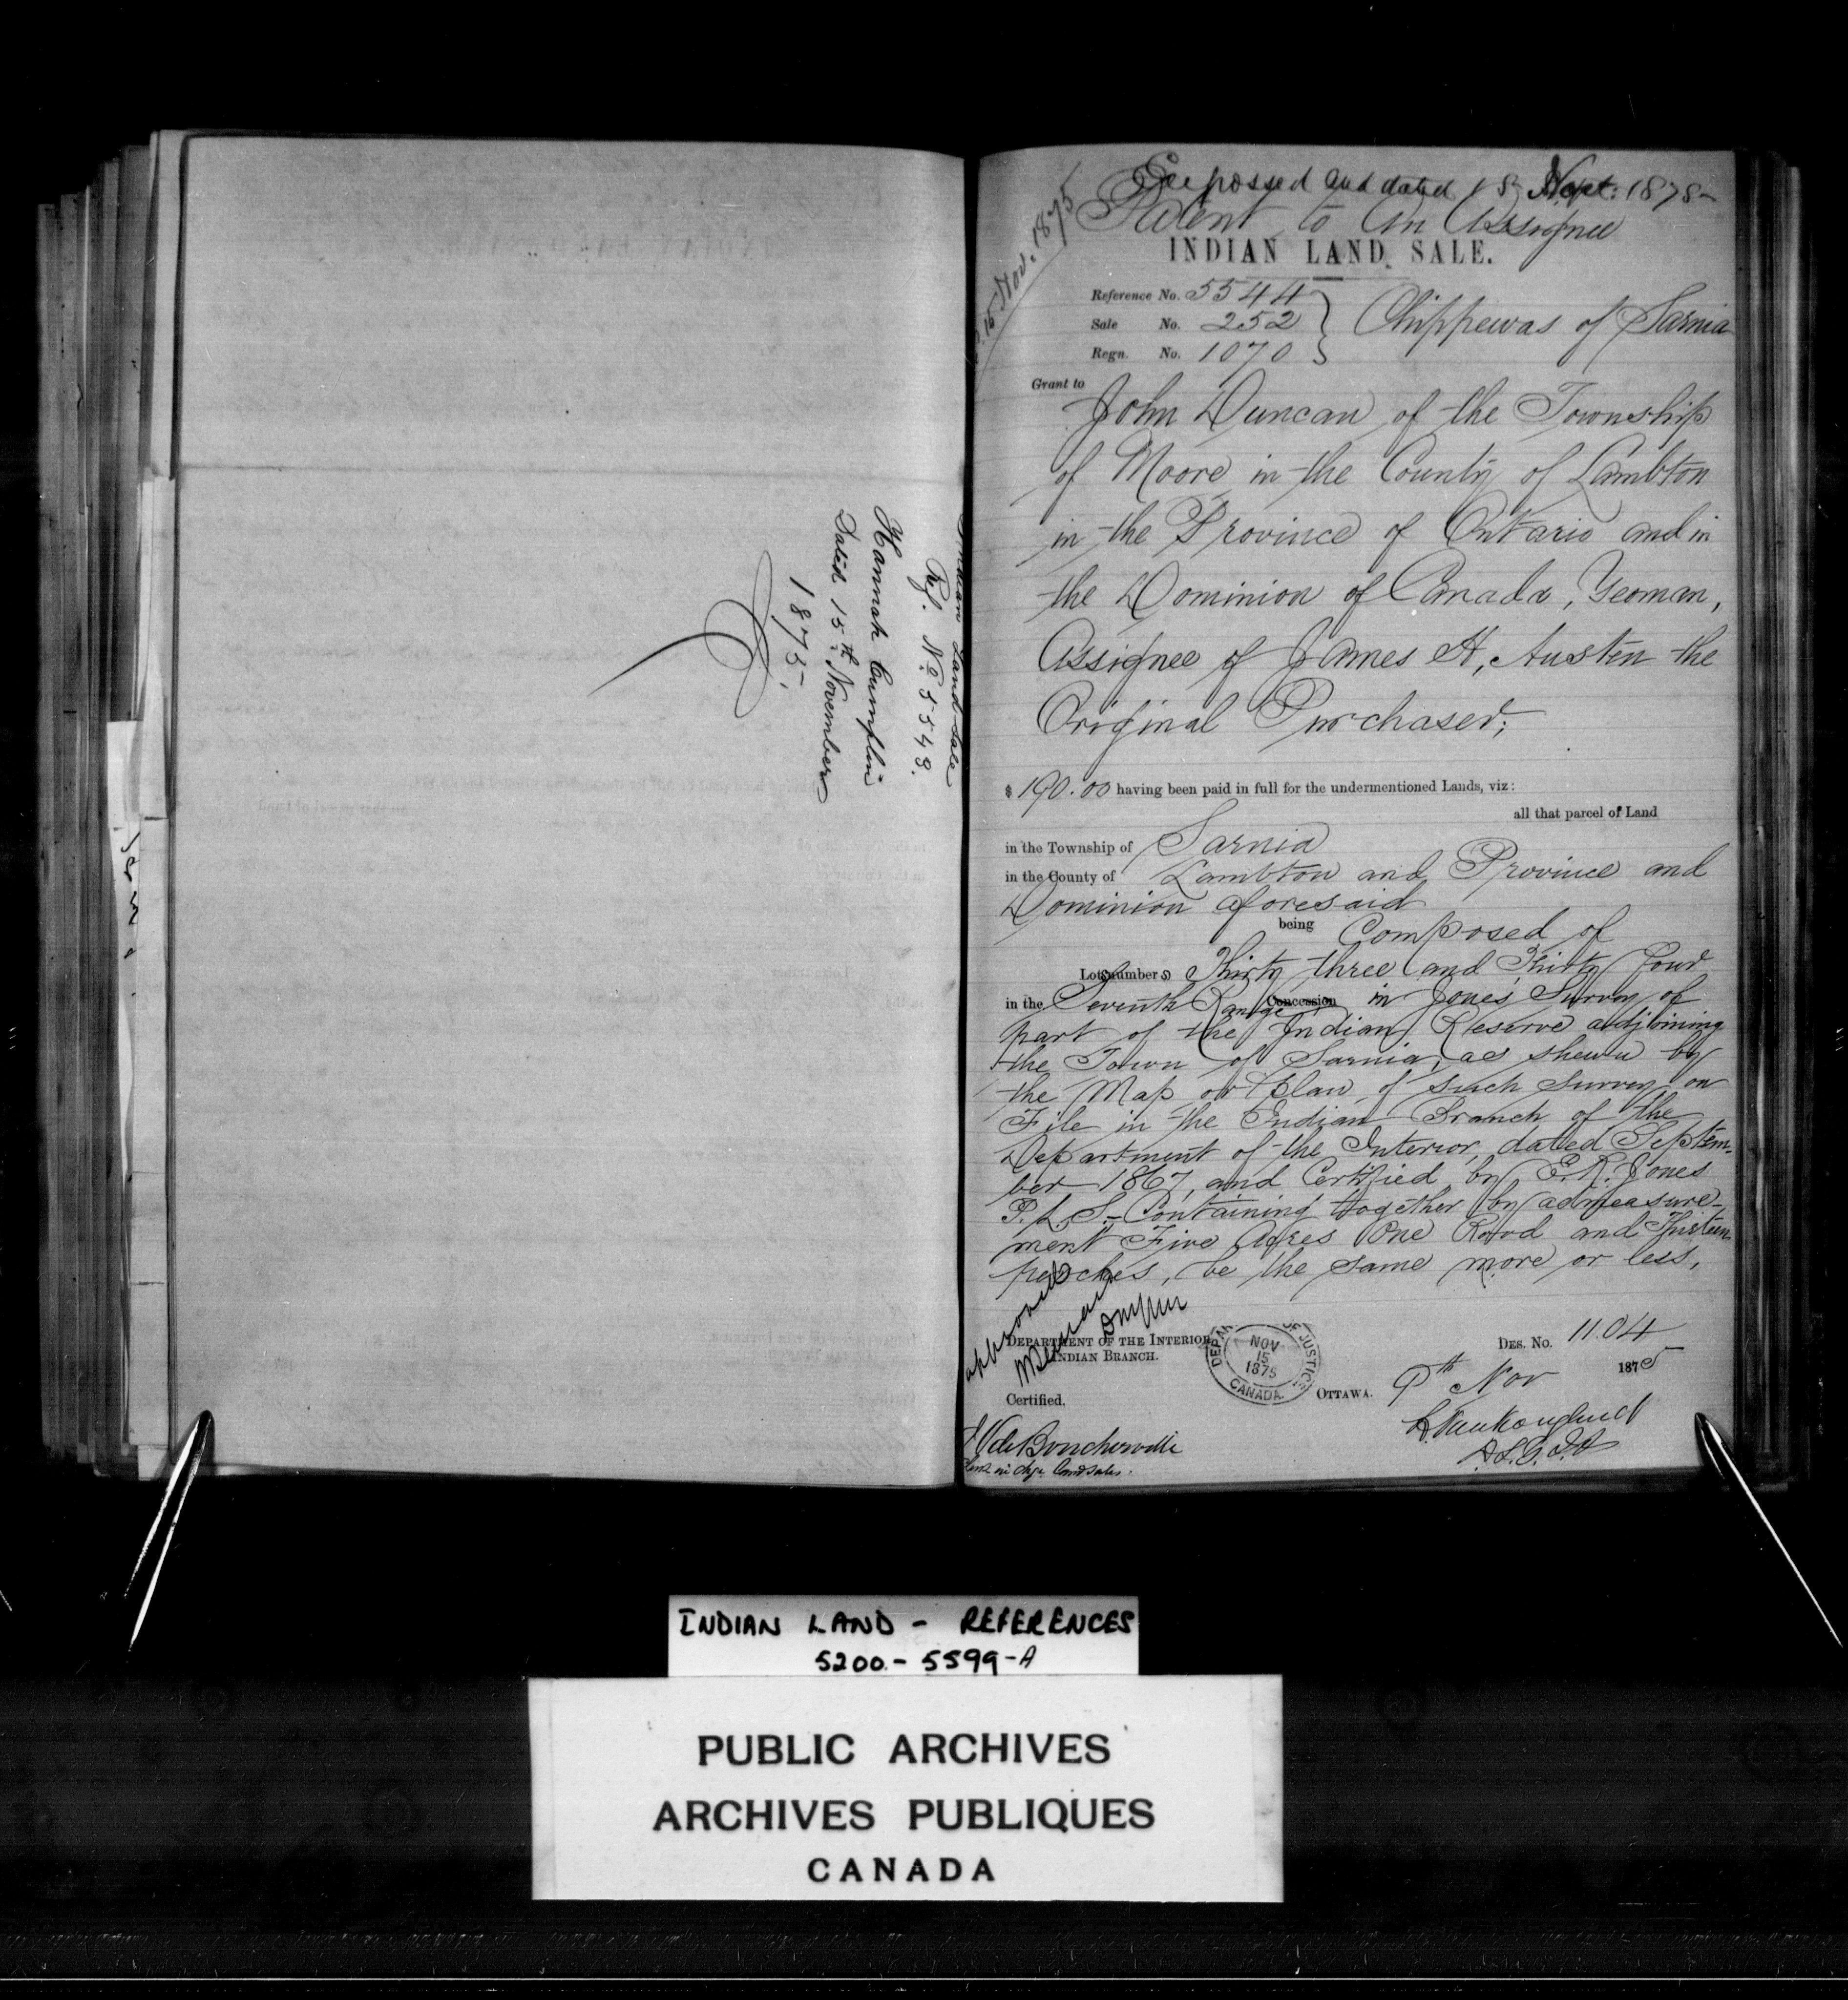 Indian Land Sale
Ref. No 5543.
Hannah
Dated 15th November
1875.
and dated 15 Nov. 1875
Patent to An Assignee
15 Nov. 1875
INDIAN LAND SALE.
Reference No. 5544
Sale No. 252
Chippewas of Sarnia
Regn. No. 1070
Grant to
John Duncan of the Township
of Moore in the County of Lambton
in the Province of Ontario and in
the Dominion of Canada, Yeoman,
Assignee of James H, Austen the
Original Purchaser;
$ 190.00 having been paid in full for the undermentioned Lands, viz:
all that parcel of Land
in the Township of Sarnia
in the County of Lambton and Province and
Dominion aforesaid
being Composed of
Lots numbers Thirty three and Thirty four
in the Seventh Range Concession in Jones' Survey of
part of the Indian Reserve adjoining
the Town of Sarnia, as shewn by
the Map or plan of such Survey on
File in the Indian Branch of the
Department of the Interior, dated Septem-
ber 1867, and Certified by E. R. Jones
P. L. S.- Containing together by admeasure-
ment Five Acres One Rood and Thirteen
perches, be the same more or less,
approved
DEPARTMENT OF THE INTERIOR
INDIAN BRANCH.
DEPARTMENT OF JUSTICE
NOV
15
1875
CANADA.
DES. NO. 1104
OTTAWA. 9th Nov 1875
Certified,
L. Vankoughnet
de Boucherville
in chge land sales.
INDIAN LAND - REFERENCES
5200 - 5599-A
PUBLIC ARCHIVES
ARCHIVES PUBLIQUES
CANADA